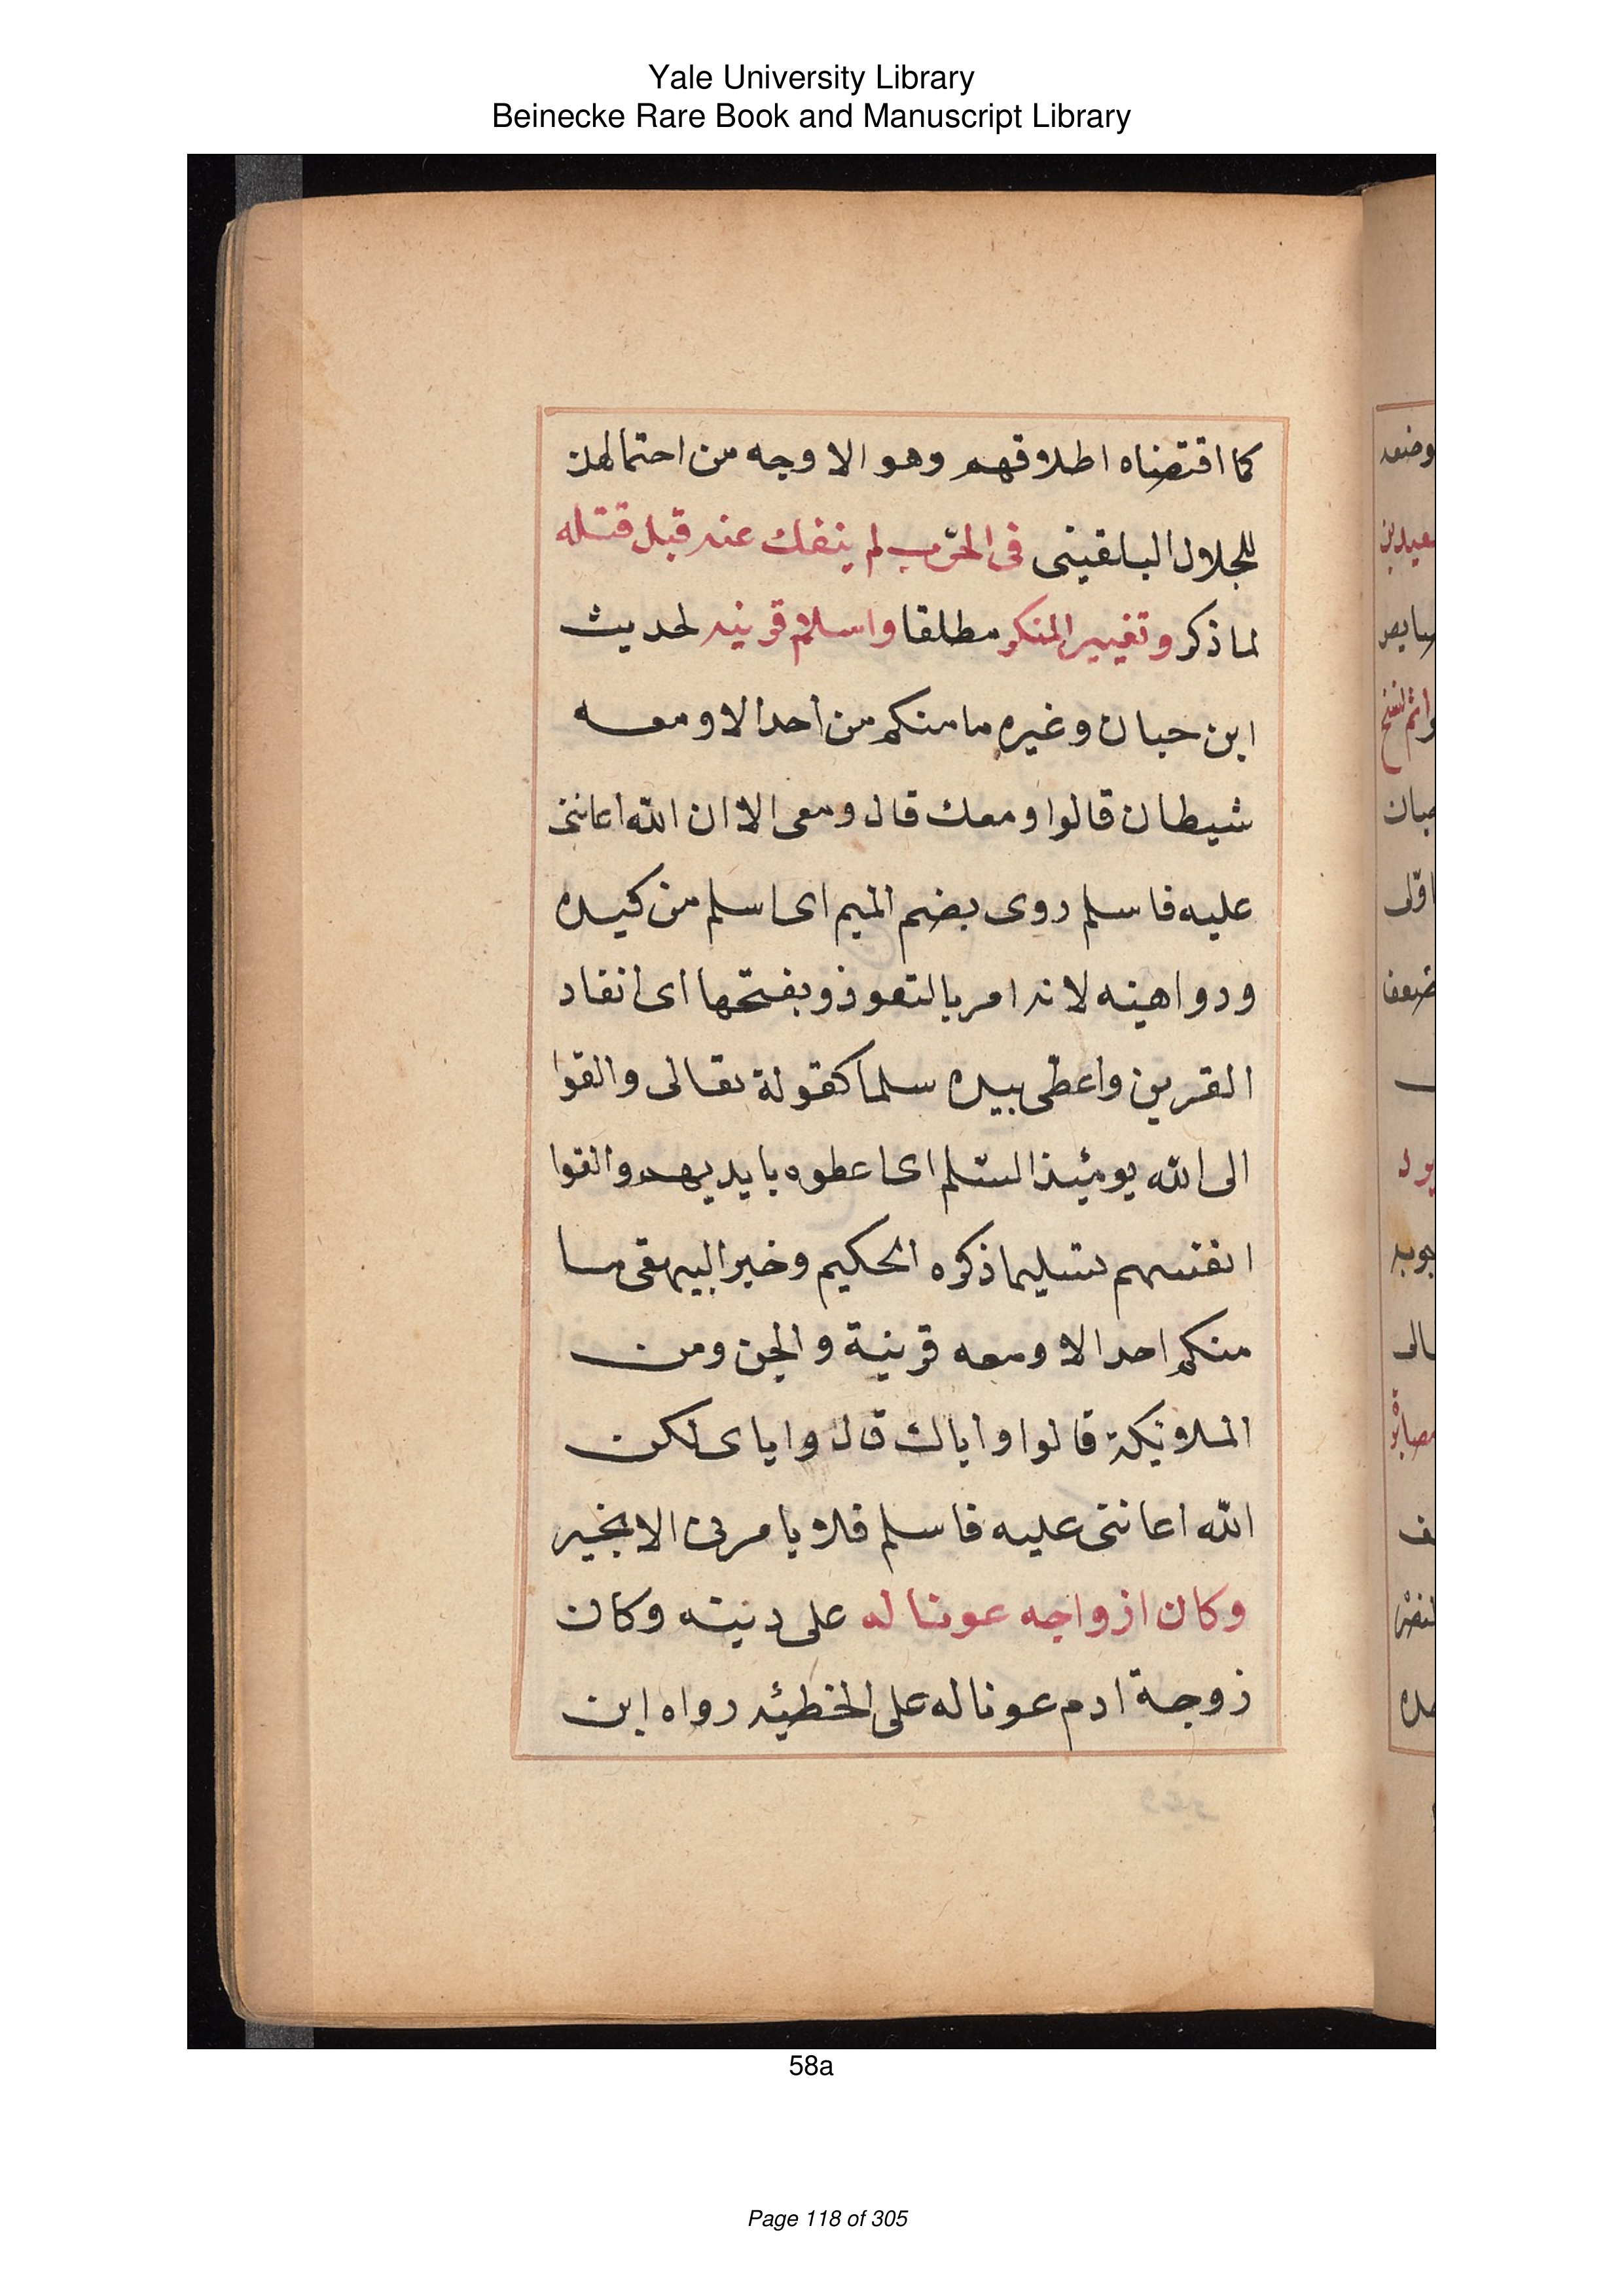 Yale University Library
Beinecke Rare Book and Manuscript Library
كما اقتضاه اطلاقهم وهو الاوجه من احتمالين
للجلال البلقينى فى الحرب لم ينفك عنه قبل قتله
لما ذكر وتغيير المنكر مطلقا واسلام قرينه لحديث
ابن حبان وغيره ما منكم من احد الا ومعه
شيطان قالوا ومعك قال ومعى الا ان الله اعاننى
عليه فاسلم روى بضم الميم اى اسلم من كيده
ودواهيه لانه امر بالتعوذ وبفتحها اى انقاد
القرين واعطى بيده سلما كقولة تعالى والقوا
الى الله يومئذ السّلم اى اعطوه بايديهم والقوا
انفسهم تسليما ذكره الحكيم وخبر البيهقى ما
منكم احد الا ومعه قرينة والجن ومن
الملائكة قالوا واياك قال واياى لكن
الله اعاننى عليه فاسلم فلا يامرنى الا بخير
وكان ازواجه عونا له على دنيته وكان
زوجة ادم عونا له على الخطيئه رواه ابن
58a
Page 118 of 305